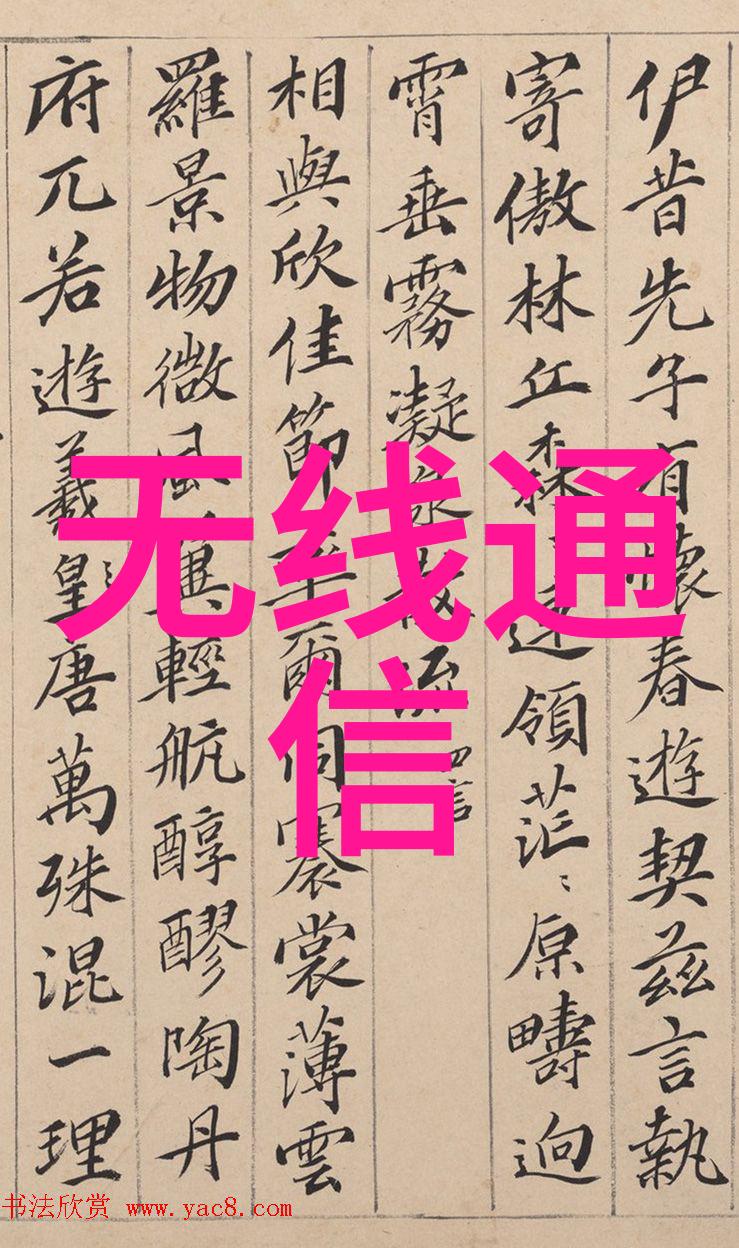 伊昔先子有懷春遊契茲言執
寄傲林丘森連領茫〻原疇迥
霄垂霧凝泉散流 四言
相與欣佳節率爾同褰裳薄雲
羅景物微風翼輕航醇醪陶丹
府兀若遊羲皇唐萬殊混一理
无线通
信
书法欣赏 www.yac8.com